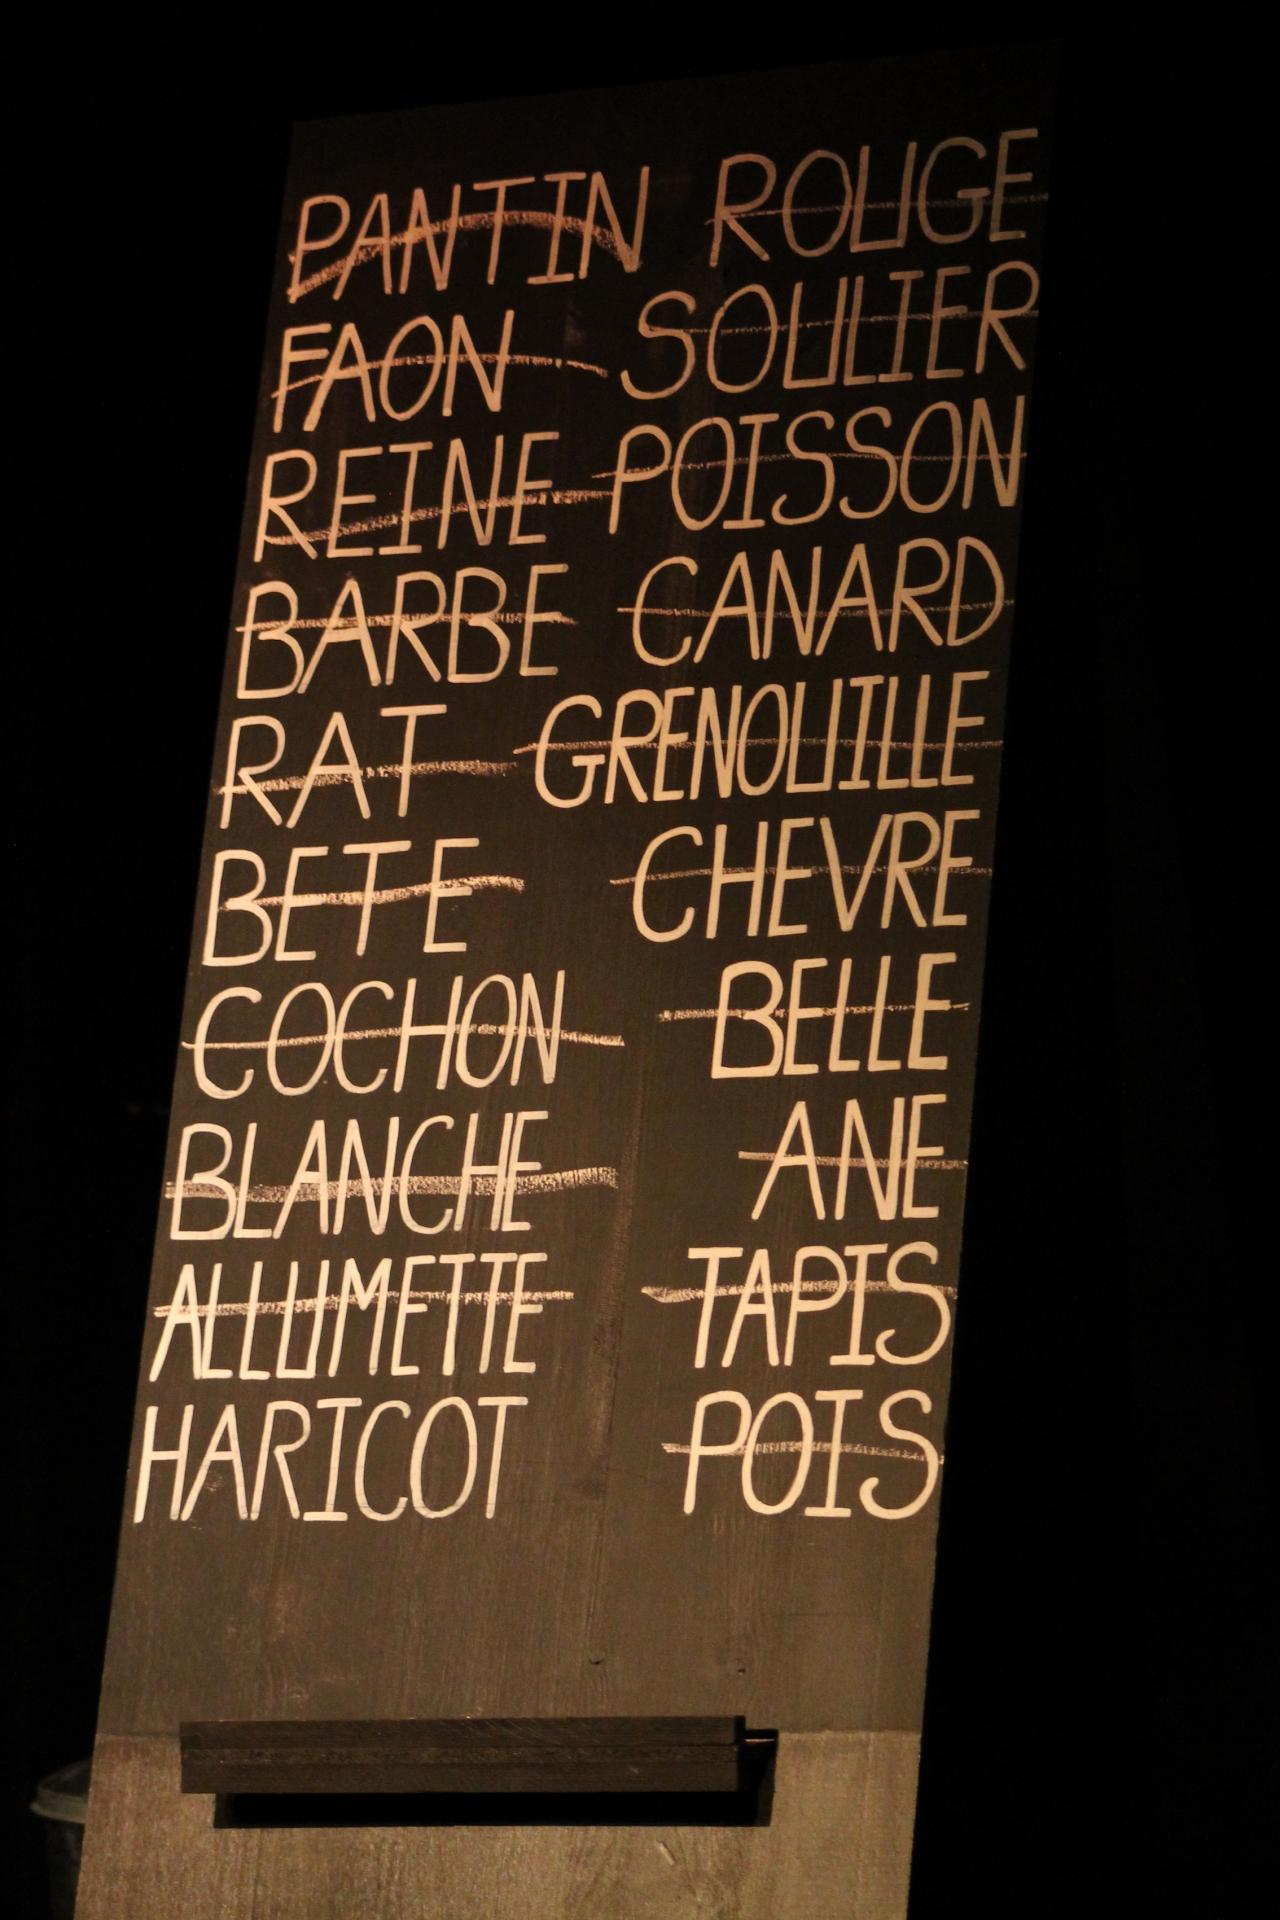 PANTIN ROUGE
FAON SOULIER
REINE POISSON
BARBE CANARD
RAT GRENOUILLE
BETE CHEVRE
COCHON BELLE
BLANCHE ANE
ALLUMETTE TAPIS
HARICOT POIS